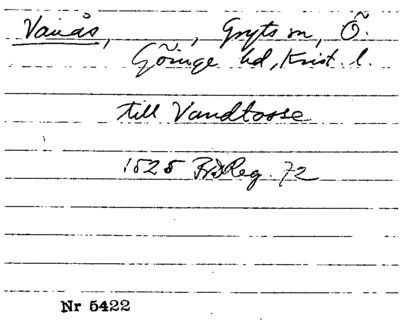 Vanås, , Gryts sn, Ö.
Göinge hd, Krist. l.
till Vandtosse
1525 Reg. 72
Nr 5422